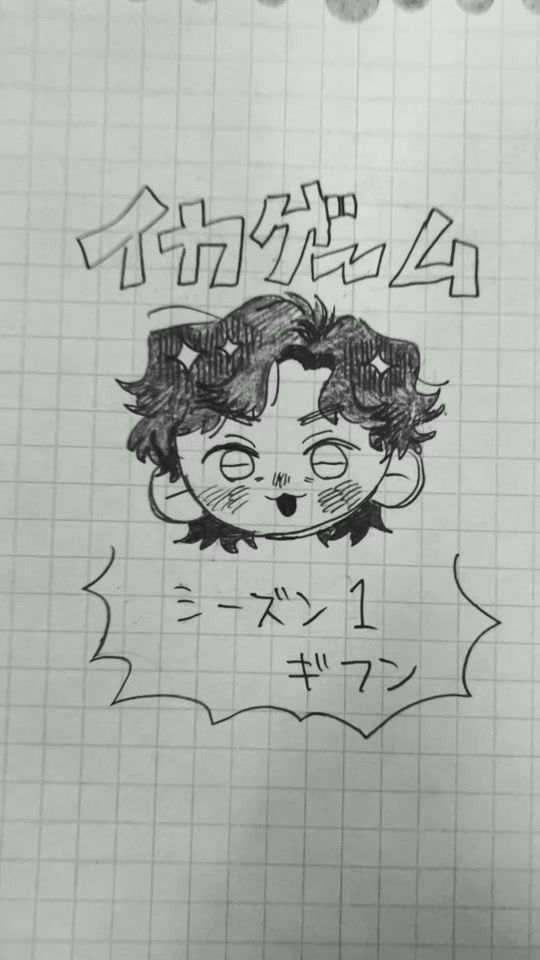 イカゲーム
シーズン1
ギフン